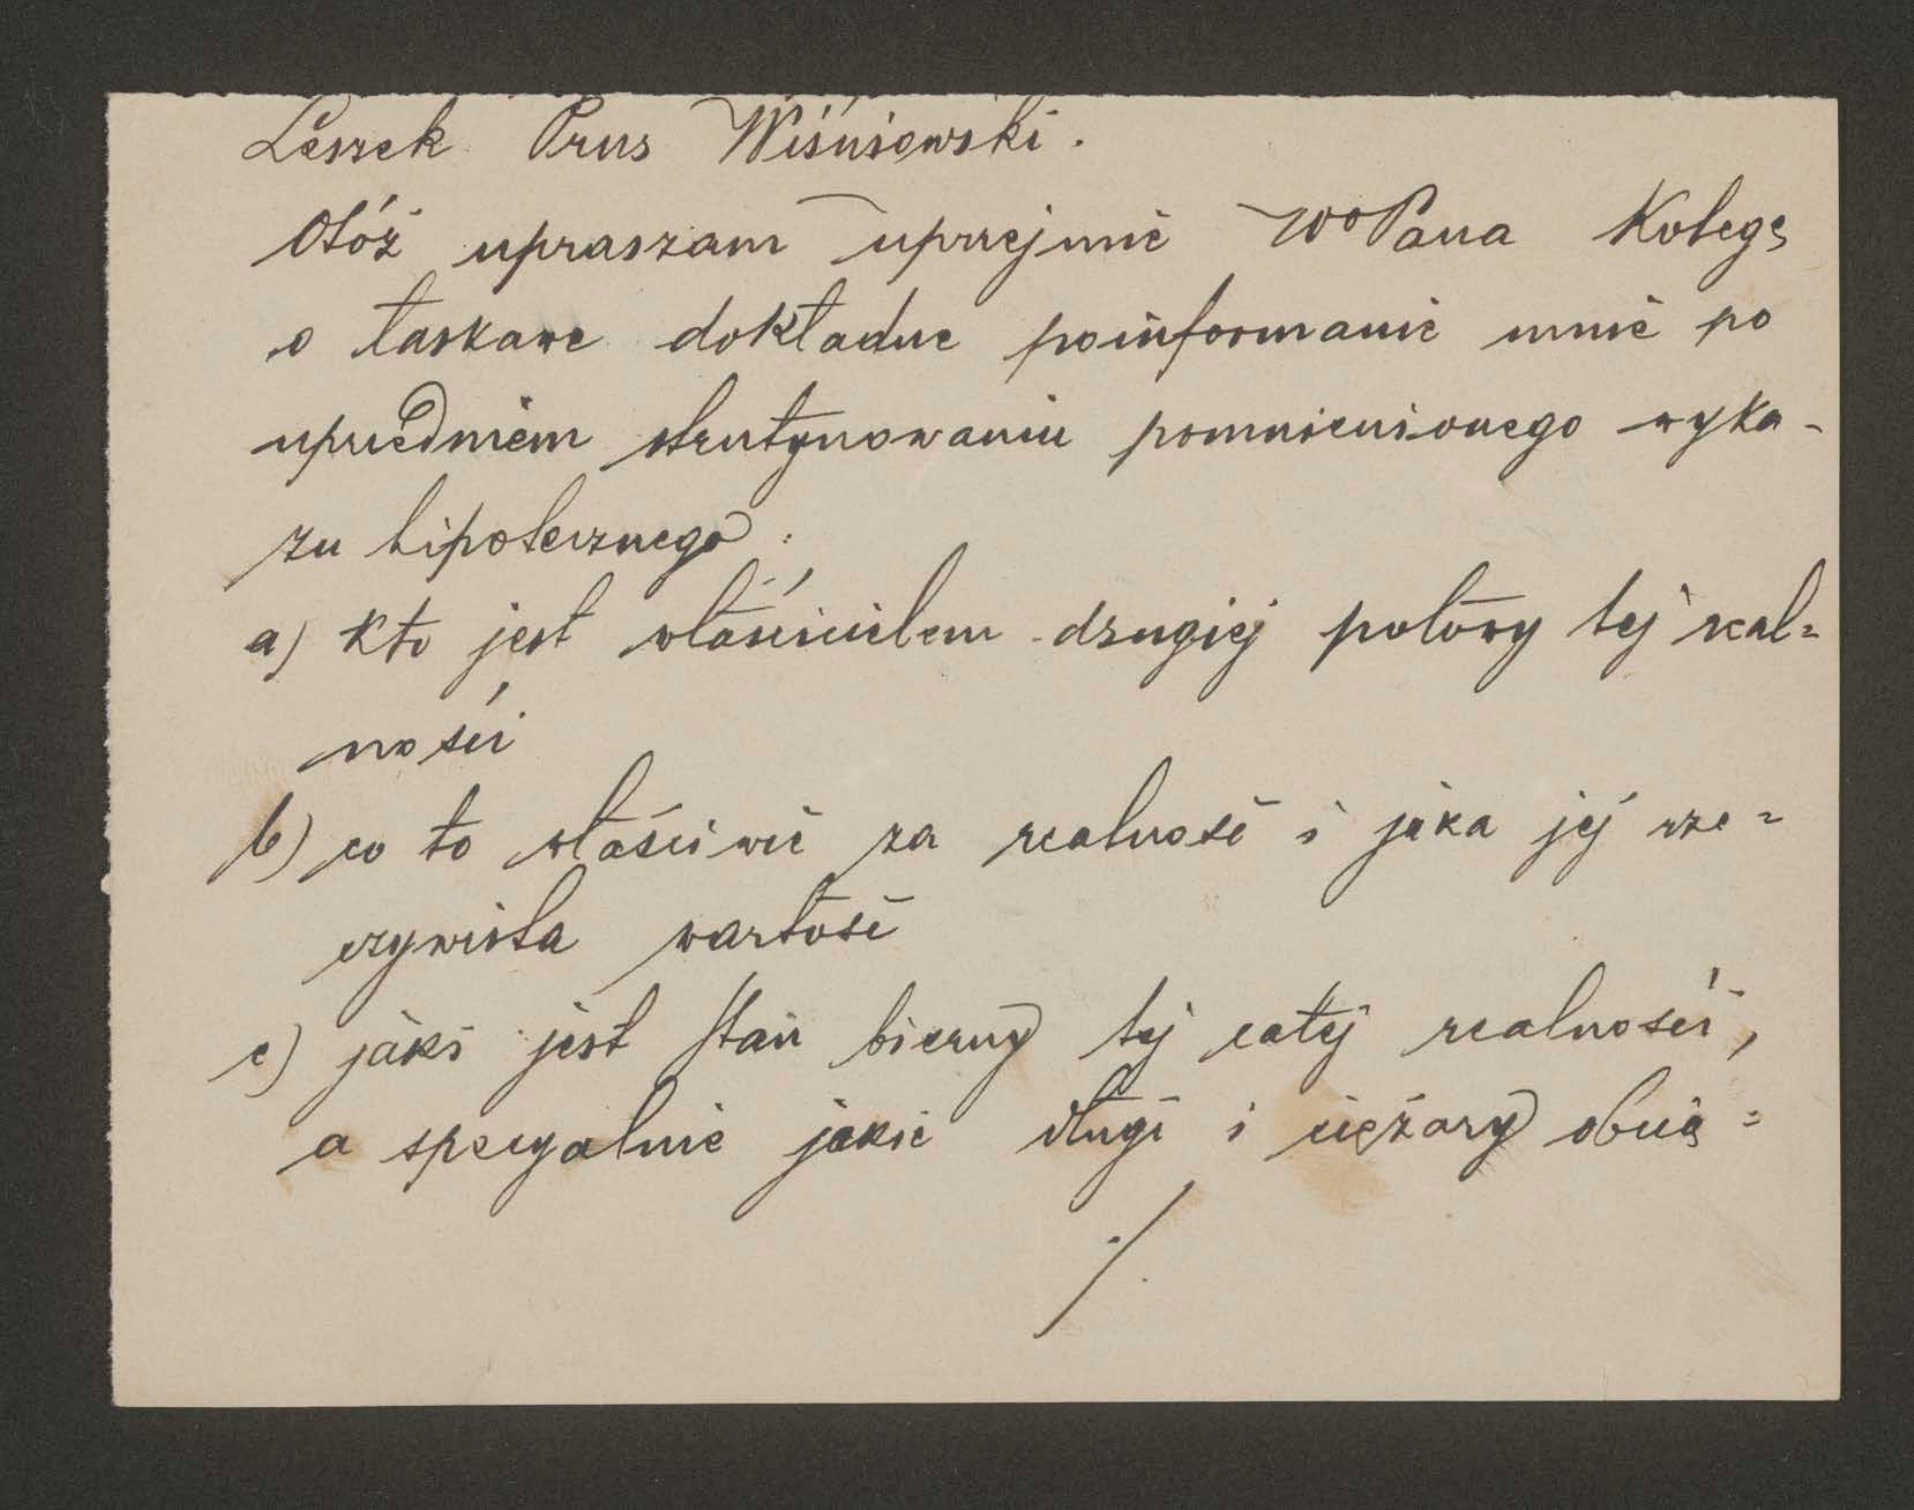 Leszek Prus Wiśniewski.
Otóż upraszam uprzejmie WoPana Kolegę
o łaskawe dokładne poinformanie mnie po
uprzedniem skrutynowaniu pomienionego wyka-
zu hipotecznego:
a) kto jest właścicielem drugiej połowy tej real=
ności
b) co to właściwie za realność i jaka jej rze=
czywista wartość
c) jaki jest stan bierny tej całej realności,
a specyalnie jakie długi i ciężary obcią=
./.